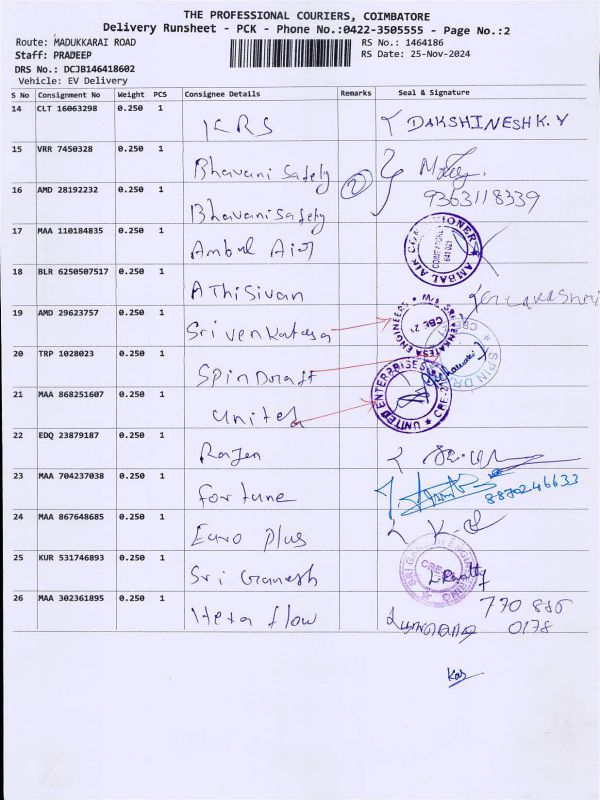 THE PROFESSIONAL COURIERS, COIMBATORE
Delivery Runsheet - PCK - Phone No.:0422-3505555 - Page No.:2
Route: MADUKKARAI ROAD
RS No.: 1464186
Staff: PRADEEP
RS Date: 25-Nov-2024
DRS No.: DCJB146418602
Vehicle: EV Delivery
S No Consignment No Weight PCS Consignee Details Remarks Seal & Signature
14 CLT 16063298 0.250 1 KRS DAKSHINESH K.Y
15 VRR 7450328 0.250 1 Bhavani Safety
16 AMD 28192232 0.250 1 Bhavani Safety 2 9363118339
17 MAA 110184835 0.250 1 Ambal Air AMBAL AIR
18 BLR 6250507517 0.250 1 AThiSivan
19 AMD 29623757 0.250 1 Sri venkatesa ENGINEERS CBE 21
20 TRP 1028023 0.250 1 Spin Draft SPIN
21 MAA 868251607 0.250 1 United UNITED ENTERPRISES
22 EDQ 23879187 0.250 1 Rajen
23 MAA 704237038 0.250 1 fortune 8870246633
24 MAA 867648685 0.250 1 Euro Plus
25 KUR 531746893 0.250 1 Sri Ganesh SRI GANESH
26 MAA 302361895 0.250 1 Hexa flow 770 886
0178